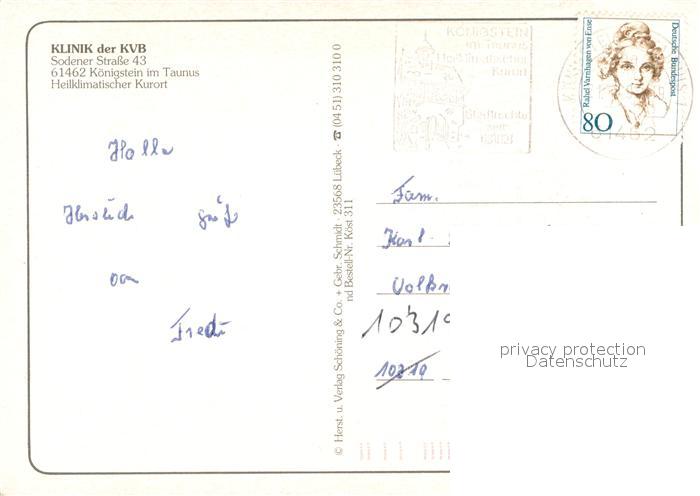 KLINIK der KVB
Sodener Straße 43
61462 Königstein im Taunus
Heilklimatischer Kurort
KÖNIGSTEIN
im Taunus
Heilklimatischer
Kurort
Stadtrechte
seit
1313
61462
Rahel Varnhagen von Ense
Deutsche Bundespost
80
Hallo
Herzliche Grüße
von
Fredi
© Herst. u. Verlag Schöning & Co. + Gebr. Schmidt · 23568 Lübeck · ☎ (04 51) 310 310 0
nd Bestell-Nr. Köst 311
Fam.
Karl
10319
privacy protection
Datenschutz